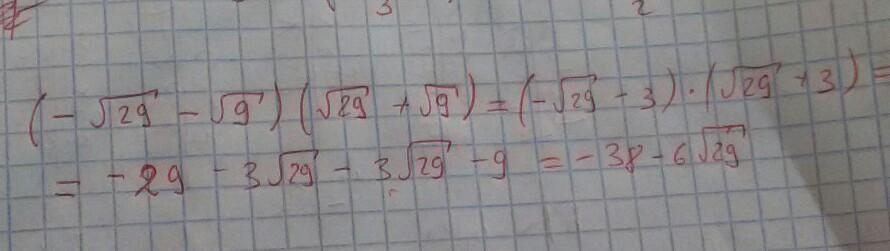 3 2
(-√29 - √9)(√29 + √9) = (-√29 - 3)·(√29 + 3) =
= -29 - 3√29 - 3√29 - 9 = -38 - 6√29